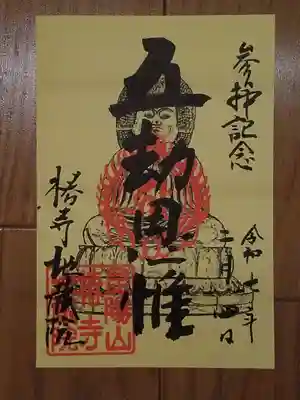 參拝記念
令和七年
二月四日
五劫思惟
椿寺地蔵院
昆陽山
椿寺
地蔵院